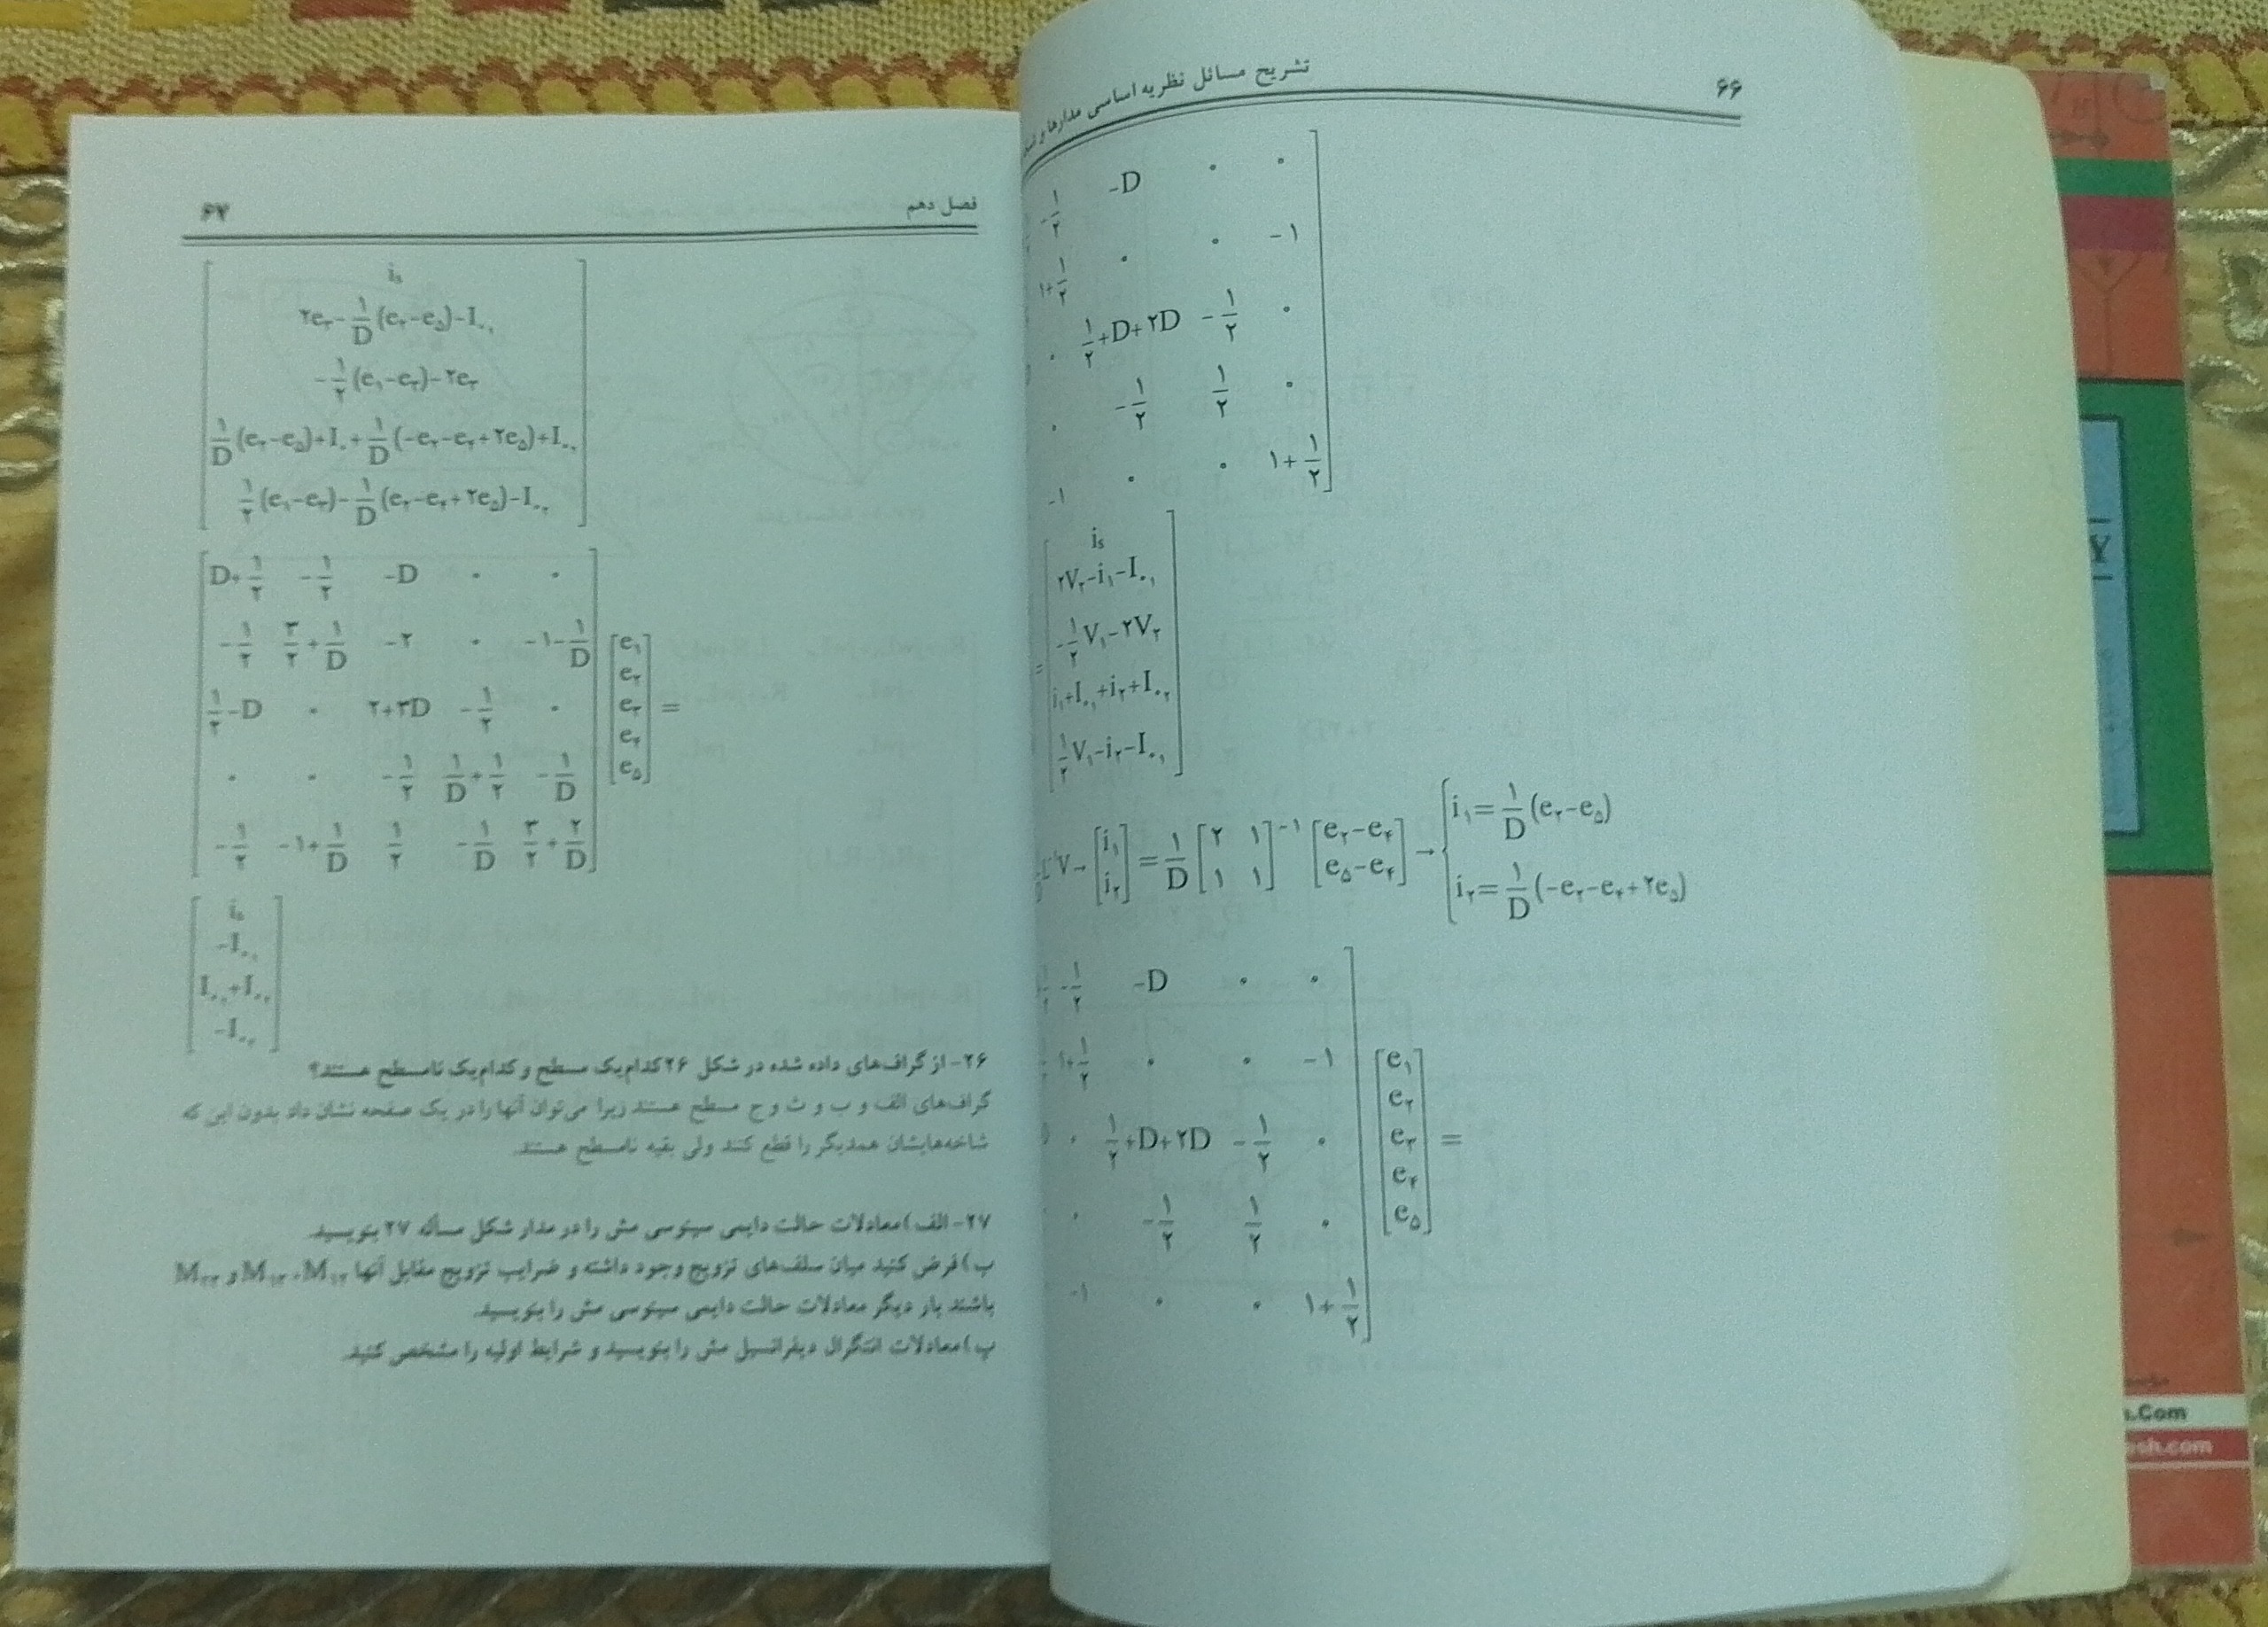 ۶۶
تشریح مسائل نظریه اساسی مدارها و
-۱/۲ -D ۰ ۰
۱+۱/۲ ۰ ۰ -۱
۰ ۱/۲+D+۲D -۱/۲ ۰
۰ -۱/۲ ۱/۲ ۰
-۱ ۰ ۰ ۱+۱/۲
iₛ
۲V₃-i₁-I₀₁
= -۱/۲V₁-۲V₂
i₁+I₀₁+i₂+I₀₂
۱/۲V₁-i₂-I₀₁
V→[i₁ i₂]=۱/D[۲ ۱ ۱ ۱]⁻¹[e₂-e₄ e₅-e₄]→{i₁=۱/D(e₂-e₅)
i₂=۱/D(-e₂-e₄+۲e₅)
-۱/۲ -D ۰ ۰
۱+۱/۲ ۰ ۰ -۱ e₁
e₂
۰ ۱/۲+D+۲D -۱/۲ ۰ e₃ =
۰ -۱/۲ ۱/۲ ۰ e₄
e₅
-۱ ۰ ۰ ۱+۱/۲
فصل دهم
۶۷
iₛ
۲e₃-۱/D(e₂-e₅)-I₀₁
-۱/۲(e₁-e₃)-۲e₃
۱/D(e₂-e₅)+I₀+۱/D(-e₂-e₄+۲e₅)+I₀₂
۱/۲(e₁-e₃)-۱/D(e₂-e₄+۲e₅)-I₀₂
D+۱/۲ -۱/۲ -D ۰ ۰
-۱/۲ ۳/۲+۱/D -۲ ۰ -۱-۱/D e₁
e₂
۱/۲-D ۰ ۲+۳D -۱/۲ ۰ e₃ =
e₄
۰ ۰ -۱/۲ ۱/D+۱/۲ -۱/D e₅
-۱/۲ -۱+۱/D ۱/۲ -۱/D ۳/۲+۲/D
iₛ
-I₀₁
I₀₁+I₀₂
-I₀₂
۲۶- از گراف‌های داده شده در شکل ۲۶ کدام‌یک مسطح و کدام‌یک نامسطح هستند؟
گراف‌های الف و ب و ث و ج مسطح هستند زیرا می‌توان آنها را در یک صفحه نشان داد بدون این که
شاخه‌هایشان همدیگر را قطع کنند ولی بقیه نامسطح هستند.
۲۷- الف) معادلات حالت دایمی سینوسی مش را در مدار شکل مسأله ۲۷ بنویسید.
ب) فرض کنید میان سلف‌های تزویج وجود داشته و ضرایب تزویج مقابل آنها M₁₂، M₁₃ و M₂₃
باشند بار دیگر معادلات حالت دایمی سینوسی مش را بنویسید.
پ) معادلات انتگرال دیفرانسیل مش را بنویسید و شرایط اولیه را مشخص کنید.
.Com
sh.com